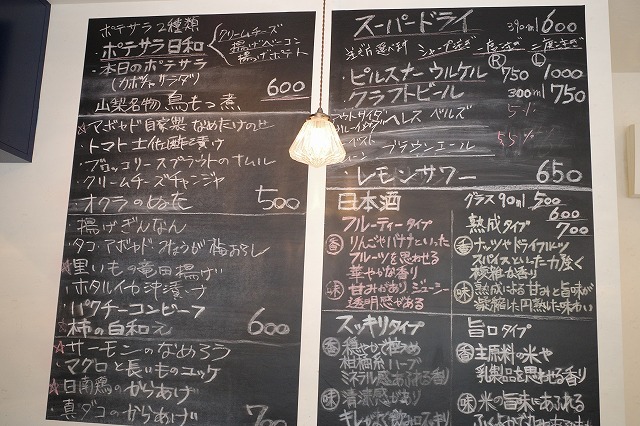 ポテサラ2種類
ポテサラ日和
クリームチーズ
揚げベーコン
揚げポテト
・本日のポテサラ
(カボチャサラダ)
600
山梨名物 鳥もつ煮
☆アボカド自家製なめたけのせ
・トマト土佐酢漬け
・ブロッコリースプラウトのナムル
・クリームチーズチャンジャ
・オクラのおひた
500
・揚げぎんなん
・タコ・アボカド・みょうが梅おろし
☆里いもの竜田揚げ
・ホタルイカ沖漬け
・パクチーコンビーフ
☆柿の白和え
600
☆サーモンのなめろう
・マグロと長いものユッケ
☆日南鶏のからあげ
・真ダコのからあげ
700
スーパードライ 390ml 600
シャープ注ぎ 一度注ぎ 二度注ぎ
Ⓡ Ⓛ
・ピルスナーウルケル 750 1000
クラフトビール 300ml 750
ヘレス ベルズ 5%
ブラウンエール 5.5%
・レモンサワー 650
日本酒 グラス90ml 500
600
700
フルーティータイプ
香 りんごやバナナといった
フルーツを思わせる
華やかな香り
味 甘みがありジューシー
透明感がある
熟成タイプ
香 ナッツやドライフルーツ
スパイスといった力強く
複雑な香り
味 熟成による甘みと旨味が
凝縮した円熟した味わい
スッキリタイプ
香 穏やかで控えめ
柑橘系ハーブ
ミネラル感あふれる香り
味 清涼感があり
キレがよく飲み口スッキリ
旨口タイプ
香 主原料の米や
乳製品を思わせる香り
味 米の旨味にあふれる